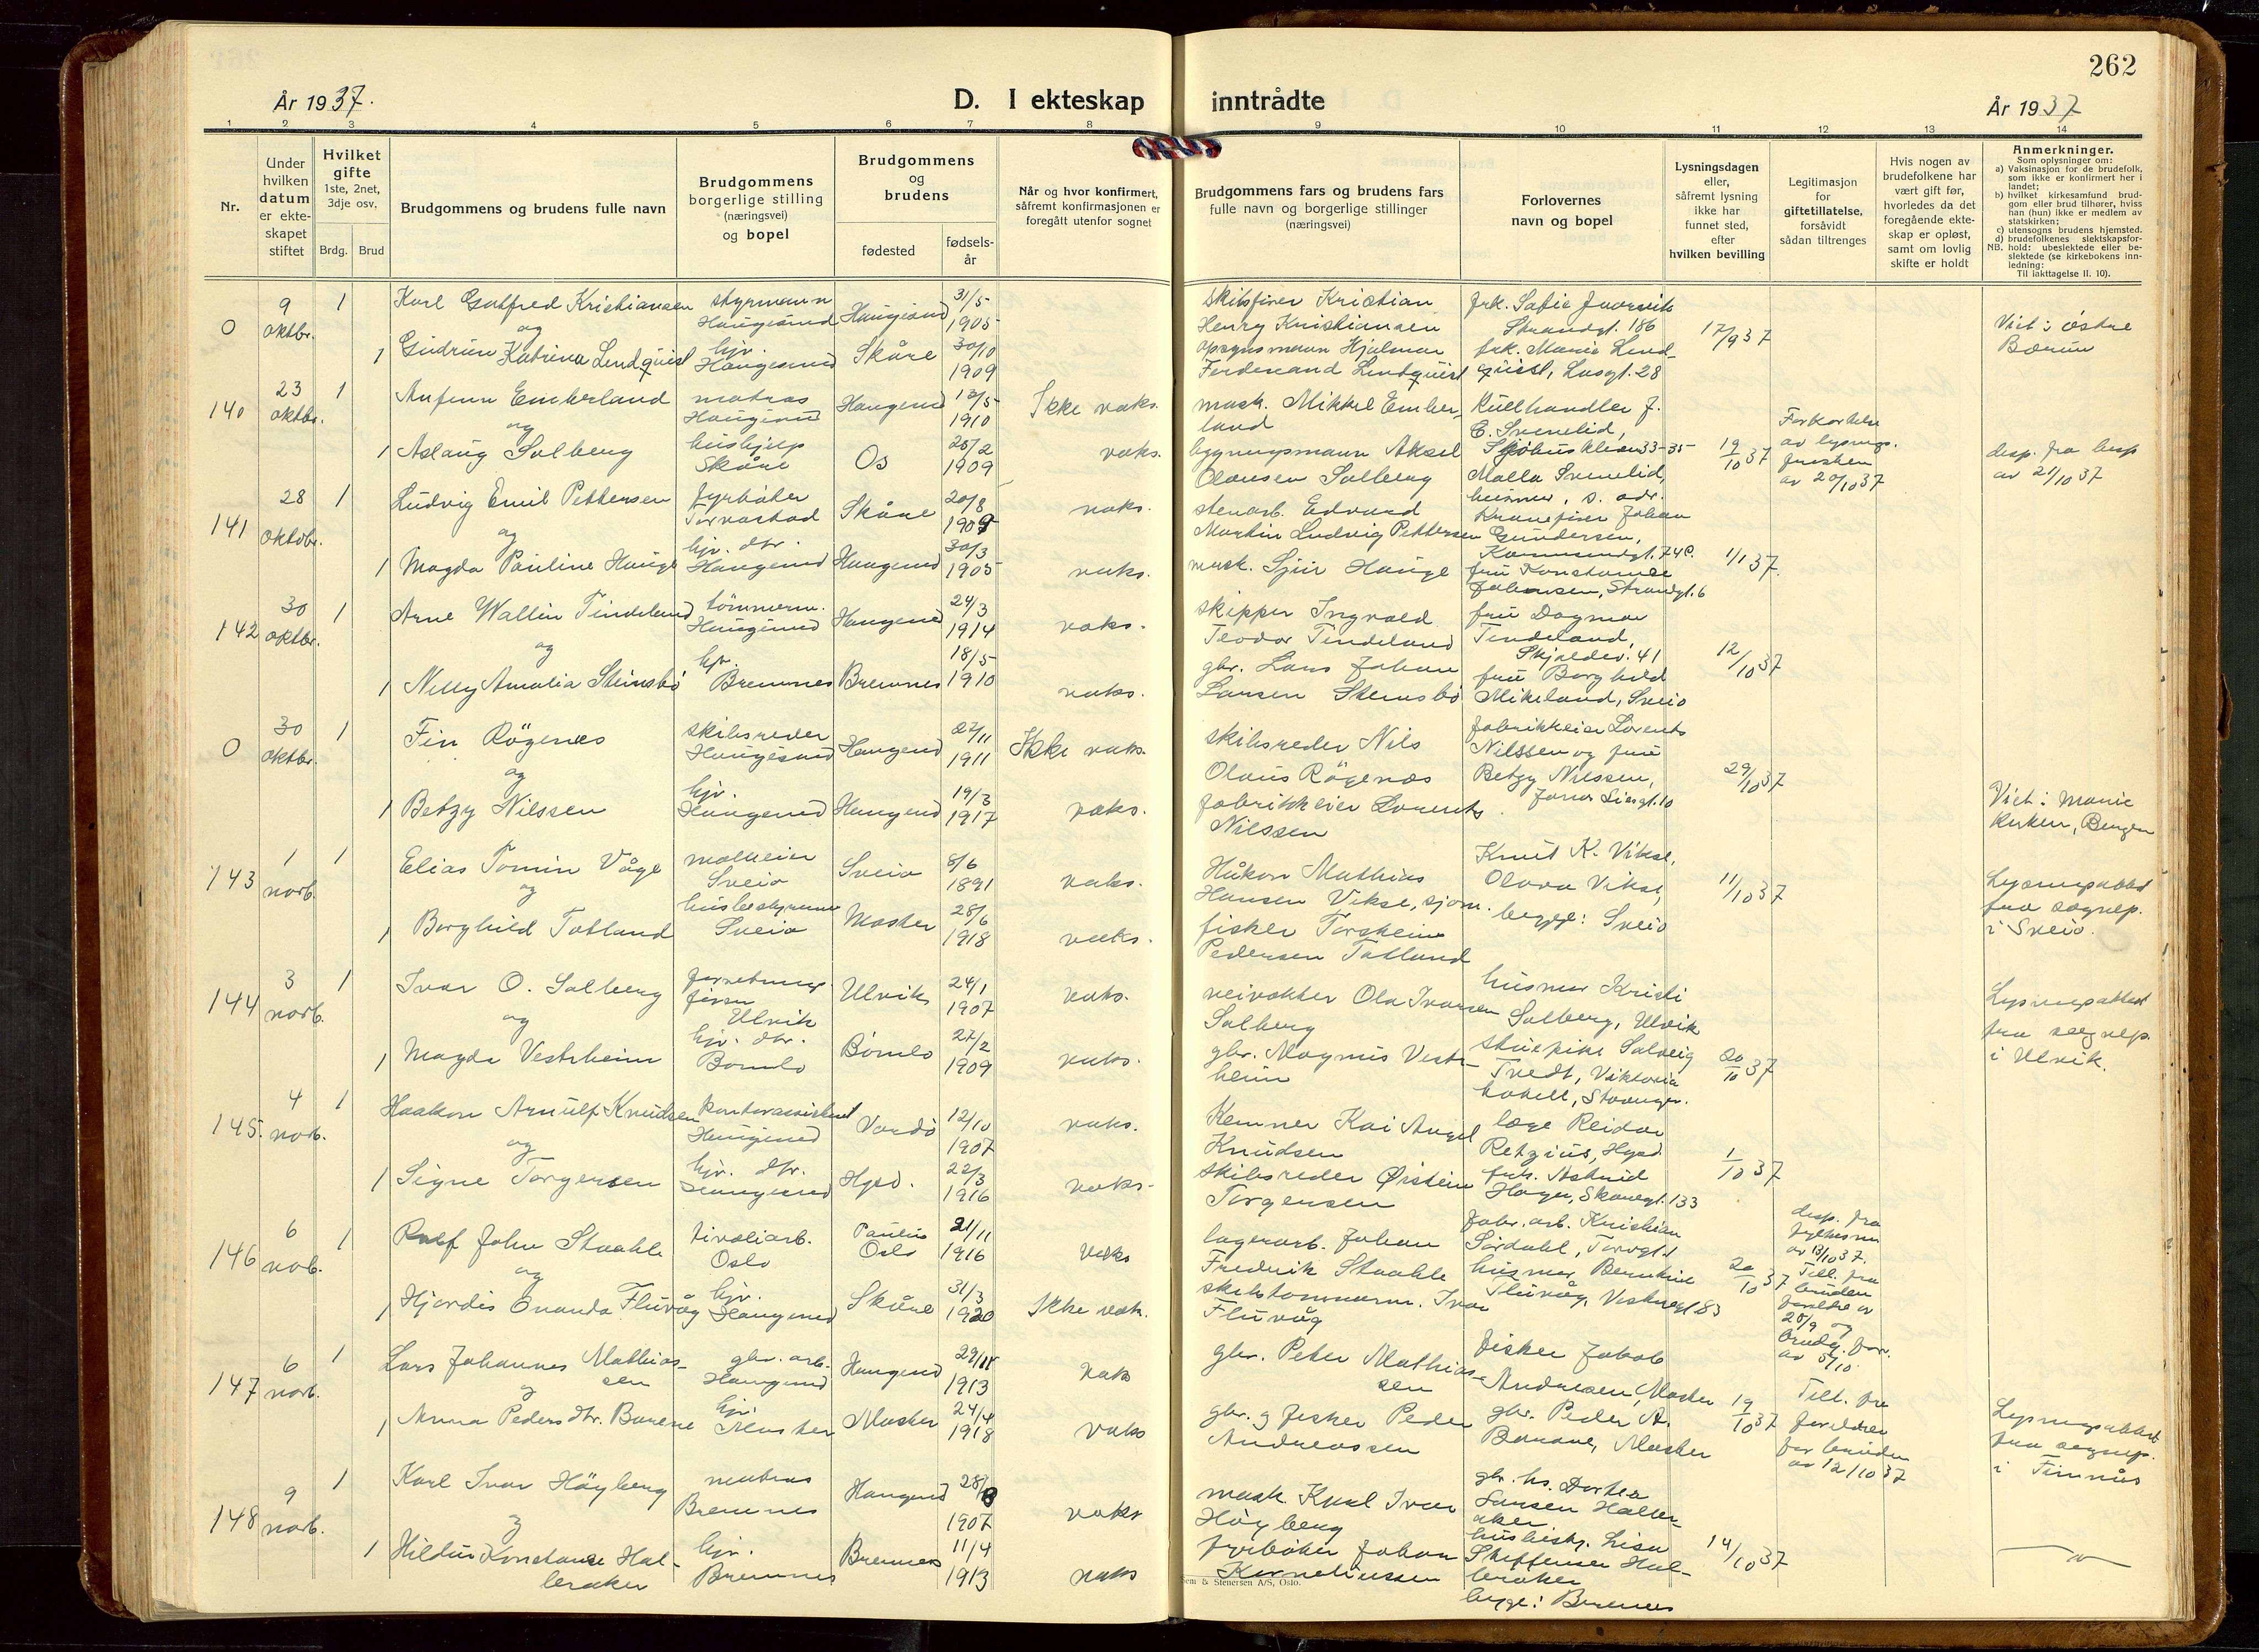 262
År 1937.
D. I ekteskap inntrådte
År 1937
1 2 3 4 5 6 7 8 9 10 11 12 13 14
Nr.
Under hvilken datum er ekteskapet stiftet
Hvilket gifte 1ste, 2net, 3dje osv.
Brdg. Brud
Brudgommens og brudens fulle navn
Brudgommens borgerlige stilling (næringsvei) og bopel
Brudgommens og brudens
fødested
fødsels-år
Når og hvor konfirmert, såfremt konfirmasjonen er foregått utenfor sognet
Brudgommens fars og brudens fars fulle navn og borgerlige stillinger (næringsvei)
Forlovernes navn og bopel
Lysningsdagen eller, såfremt lysning ikke har funnet sted, efter hvilken bevilling
Legitimasjon for giftetillatelse, forsåvidt sådan tiltrenges
Hvis nogen av brudefolkene har vært gift før, hvorledes da det foregående ekteskap er opløst, samt om lovlig skifte er holdt
Anmerkninger.
Som oplysninger om:
a) Vaksinasjon for de brudefolk, som ikke er konfirmert her i landet;
b) hvilket kirkesamfund brudgom eller brud tilhører, hviss han (hun) ikke er medlem av statskirken;
c) utensogns brudens hjemsted.
d) brudefolkenes slektskapsforhold: ubeslektede eller beslektede (se kirkebokens innledning:
NB.
Til iakttagelse II. 10).
0 9 oktbr. 1 Karl Gotfred Kristiansen styrmann Haugesund Haugesund 31/5 1905
og
1 Gudrun Katrina Lendquist hjv. Haugesund Skåre 30/10 1909
Skibsfører Kristian
Henry Kristiansen
opsynsmann Hjalmar
Ferdinand Lendquist
frk. Sofie
Strandgt. 186
frk. Marie Lend-
quist, 28
17/9 37
Viet i østre
Bærum
140 23 oktbr. 1 Anfinn Emberland matros Haugesund Haugesund 13/5 1910 Ikke vaks.
og
1 Aslaug Solberg hushjelp Skåre Os 25/2 1909 vaks.
mask. Mikkel Ember-
land
bygningsmann Aksel
Olausen Solberg
Kullhandler J.
E. Svenelid,
33-35
Malla Svenelid,
husmor, s. adr.
19/10 37
Forkortelse
av lysnings-
fristen
av 20/10 37
desp. fra
av 21/10 37
141 28 oktbr. 1 Ludvig Emil Pettersen fyrbøter Torvastad Skåre 20/8 1909 vaks.
og
1 Magda Pauline Hauge hjv. dtr. Haugesund Haugesund 30/3 1905 vaks.
stenarb. Edvard
Martin Ludvig Pettersen
mask. Sjur Hauge
Kranefører Johan
Gundersen,
Karmsundgt. 74C.
fru Konstanse
Johansen, Strandgt. 6
1/1 37.
142 30 oktbr. 1 Arne Wallin Tindeland tømmerm. Haugesund Haugesund 24/3 1914 vaks.
og
1 Nelly Amalia Steinsbø hjv. Bremnes Bremnes 18/5 1910 vaks.
skipper Ingvald
Teodor Tindeland
gbr. Lars Johan
Larsen Steinsbø
fru Dagmar
Tindeland,
Skjoldev. 41
fru Borghild
Mikeland, Sveio
12/10 37
0 30 oktbr. 1 Fin Røgenes skibsreder Haugesund Haugesund 27/11 1911 Ikke vaks.
og
1 Betzy Nilssen hjv. Haugesund Haugesund 19/3 1917 vaks.
skibsreder Nils
Olaus Røgenes
fabrikkeier Lorents
Nilssen
fabrikkeier Lorents
Nilssen og frue
Betzy Nilssen,
Jonas Liesgt. 10
29/10 37
Viet i Marie
kirken, Bergen
143 1 novb. 1 Elias Tomin Våge Sveio Sveio 8/6 1891 vaks.
og
1 Borghild Totland Sveio Moster 28/6 1918 vaks.
Håkon Mathias
Hansen Vikse, sjøm.
fisker Torstein
Pedersen Totland
Knut K. Vikse,
Olava Vikse,
begge: Sveio
11/10 37
Lysningsattest
fra sognep.
i Sveio.
144 3 novb. 1 Ivar O. Solberg Ulvik Ulvik 24/1 1907 vaks.
og
1 Magda Vestrheim hjv. dtr. Bømlo Bømlo 27/2 1909 vaks.
veivokter Ola Ivarsen
Solberg
gbr. Magnus Vestr-
heim
husmor Kristi
Solberg, Ulvik
stuepike Solveig
Tvedt, Viktoria
hotell, Stavanger.
20/10 37
Lysningsattest
fra sognep.
i Ulvik.
145. 4 nov. 1 Haakon Arnulf Knudsen kontorassistent Haugesund Vardø 12/10 1907 vaks.
og
1 Signe Torgersen hjv. dtr. Haugesund Hgsd. 22/3 1916 vaks.
Kemner Kai Angel
Knudsen
skibsreder Øistein
Torgersen
læge Reidar
Retzius, Hgsd.
frk. Astrid
Skåregt. 133
1/10 37
146 6 nov. 1 Rolf John Staahle tivoliarb. Oslo Paulus Oslo 21/11 1916 vaks
og
1 Hjordis Ovanda Fluvåg hjv. Haugesund Skåre 31/3 1920 Ikke vak.
lagerarb. Johan
Fredrik Staahle
skibstømmerm. Ivar
Fluvåg
fabr. arb. Kristian
Sørdahl, Torvgt. 1
husmor Berntine
Fluvåg, 83
20/10 37
desp. fra
fylkesm.
av 13/10 37.
Till. fra
bruden
foreldre av
28/9 og
brudg. for.
av 5/10
147 6 novb. 1 Lars Johannes Mathias-
sen gbr. arb. Haugesund Haugesund 29/11 1913 vaks
og
1 Anna Pedersdtr. Banene hjv. Moster Moster 24/4 1918 vaks
gbr. Peter Mathias-
sen
gbr. og fisker Peder
Andreassen
fisker Jakob
Andreasen, Moster
gbr. Peder A.
Banane, Moster
19/10 37
Till. fra
foreldrer
for bruden
av 12/10 37
Lysningsattest
fra sognep.
i Finnås
148 9 novb. 1 Karl Ivar Høyberg matros Bremnes Haugesund 28/8 1907 vaks
og
1 Hildur Konstanse Hal-
leraker hjv. Bremnes Bremnes 11/4 1913 vaks
mask. Karl Ivar
Høyberg
fyrbøter Johan
Korneliussen
gbr. hs. Dorthea
Larsen Haller-
aker
Lisa
Steffensen Hal-
leraker
begge: Bremnes
14/10 37
Sem & Stenersen A/S, Oslo.